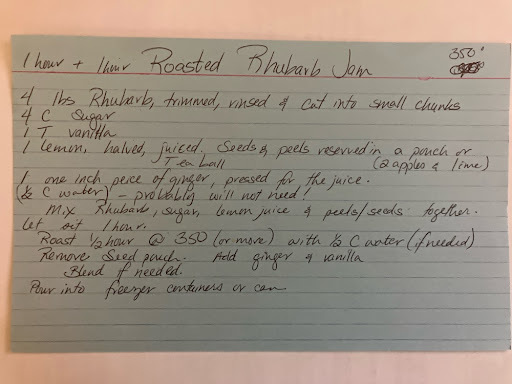 1 hour + 1 hour Roasted Rhubarb Jam 350°
4 lbs Rhubarb, trimmed, rinsed & cut into small chunks
4 C Sugar
1 T vanilla
1 lemon, halved, juiced. Seeds & peels reserved in a pouch or
Tea ball (2 apples & lime)
1 one inch peice of ginger, pressed for the juice.
(½ C water) - probably will not need!
Mix Rhubarb, sugar, lemon juice & peels/seeds together.
Let sit 1 hour.
Roast ½ hour @ 350 (or more) with ½ C water (if needed)
Remove Seed pouch. Add ginger & vanilla
Blend if needed.
Pour into freezer containers or can